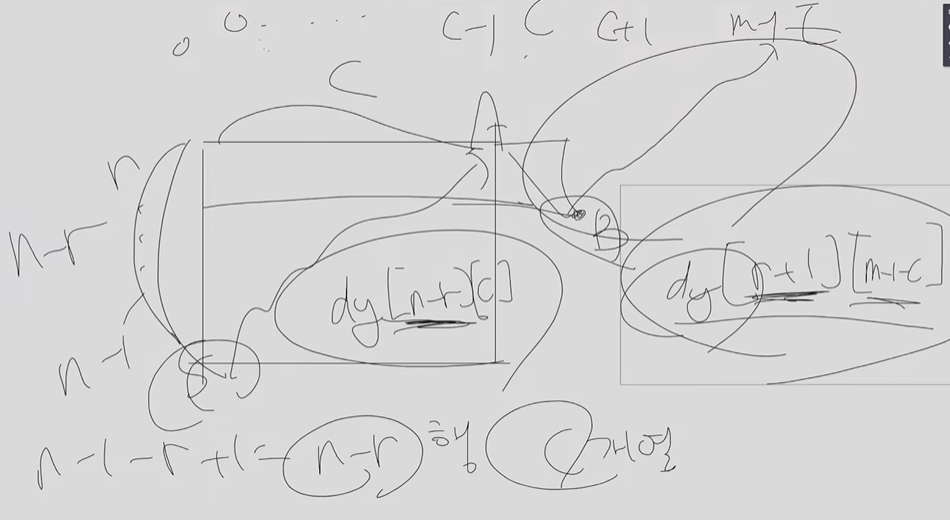 0 0 ..... C-1 C C+1 m-1 I
C
n
n-r
B
dy[n-r][C]
dy[r+1][m-1-C]
n-1
S
n-1-r+1=n-r행 C개열